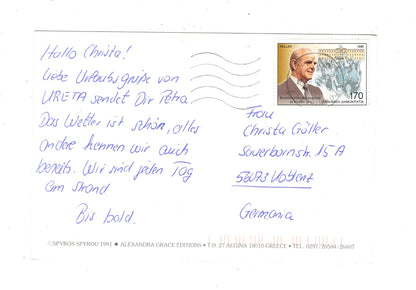 Hallo Christa!
liebe Urlaubsgrüße von
KRETA sendet Dir Petra.
Das Wetter ist schön, alles
andere kennen wir auch
bereits. Wir sind jeden Tag
am Strand
Bis bald.
HELLAS
170
Frau
Christa Göller
Sauerbornstr. 15 A
56073 Koblenz
Germania
©SPYROS SPYROU 1991 • ALEXANDRA GRACE EDITIONS • T.Θ. 27 AEGINA 18010 GREECE • TEL. 0297/26584/26607